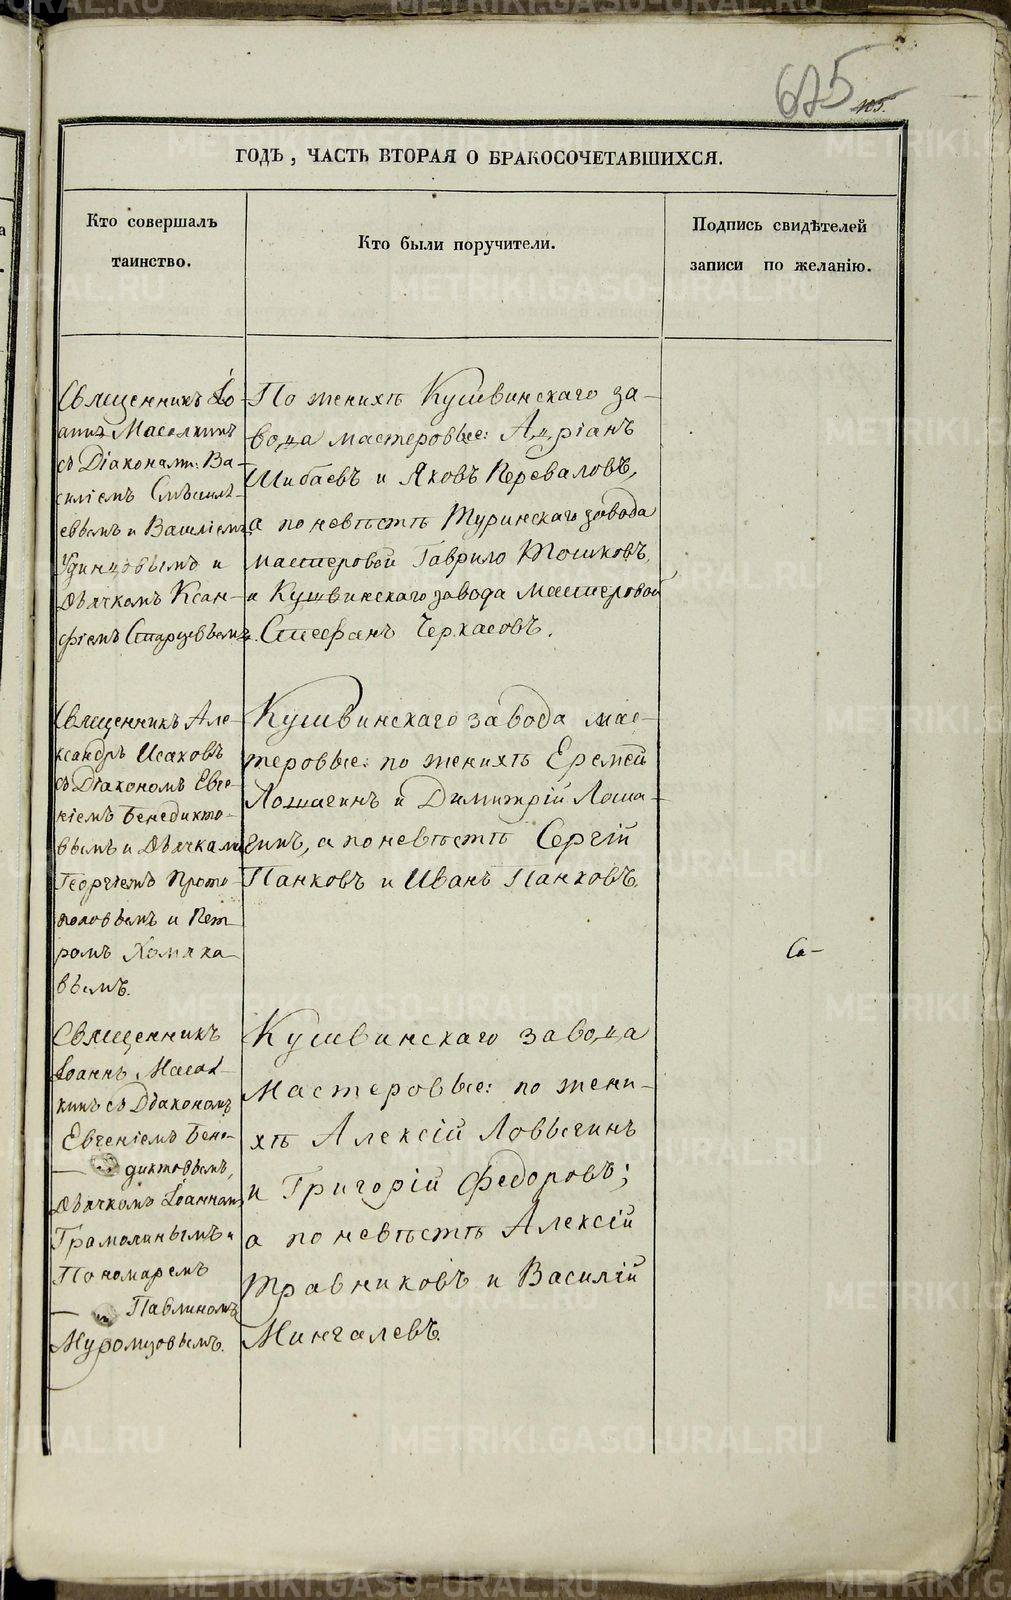 675
405.
ГОДЪ, ЧАСТЬ ВТОРАЯ О БРАКОСОЧЕТАВШИХСЯ.
Кто совершалъ
таинство.
Кто были поручители.
Подпись свидѣтелей
записи по желанію.
Священникъ Іо-
аннъ Масалкинъ
съ Діаконами: Ва-
силіемъ
евымъ и Василіемъ
Удинцовымъ и
Дьячкомъ Ксан-
фіемъ Старцевымъ.
По женихѣ Кушвинскаго за-
вода мастеровые: Адріанъ
Шибаевъ и Яковъ Переваловъ,
а по невѣстѣ Туринскаго завода
мастеровой Гаврило Тошковъ,
и Кушвинскаго завода мастеровой
Стефанъ Черкасовъ.
Священникъ Але-
ксандръ Исаковъ
съ Діакономъ Евге-
ніемъ Бенедикто-
вымъ и Дьячками
Георгіемъ Прото-
поповымъ и Пет-
ромъ Хомяко-
вымъ.
Кушвинскаго завода мас-
теровые: по женихѣ Еремей
Лошагинъ и Димитрій Лоша-
гинъ, а по невѣстѣ Сергій
Панковъ и Иванъ Панковъ.
Са-
Священникъ
Іоаннъ Масал-
кинъ съ Діакономъ
Евгеніемъ Бене-
диктовымъ,
Дьячкомъ Іоанномъ
Грамолинымъ и
Пономаремъ
Павлиномъ
Муромцовымъ.
Кушвинскаго завода
Мастеровые: по жени-
хѣ Алексій Ловыгинъ
и Григорій Федоровъ;
а по невѣстѣ Алексій
Травниковъ и Василій
Мингалевъ.
METRIKI.GASO-URAL.RU